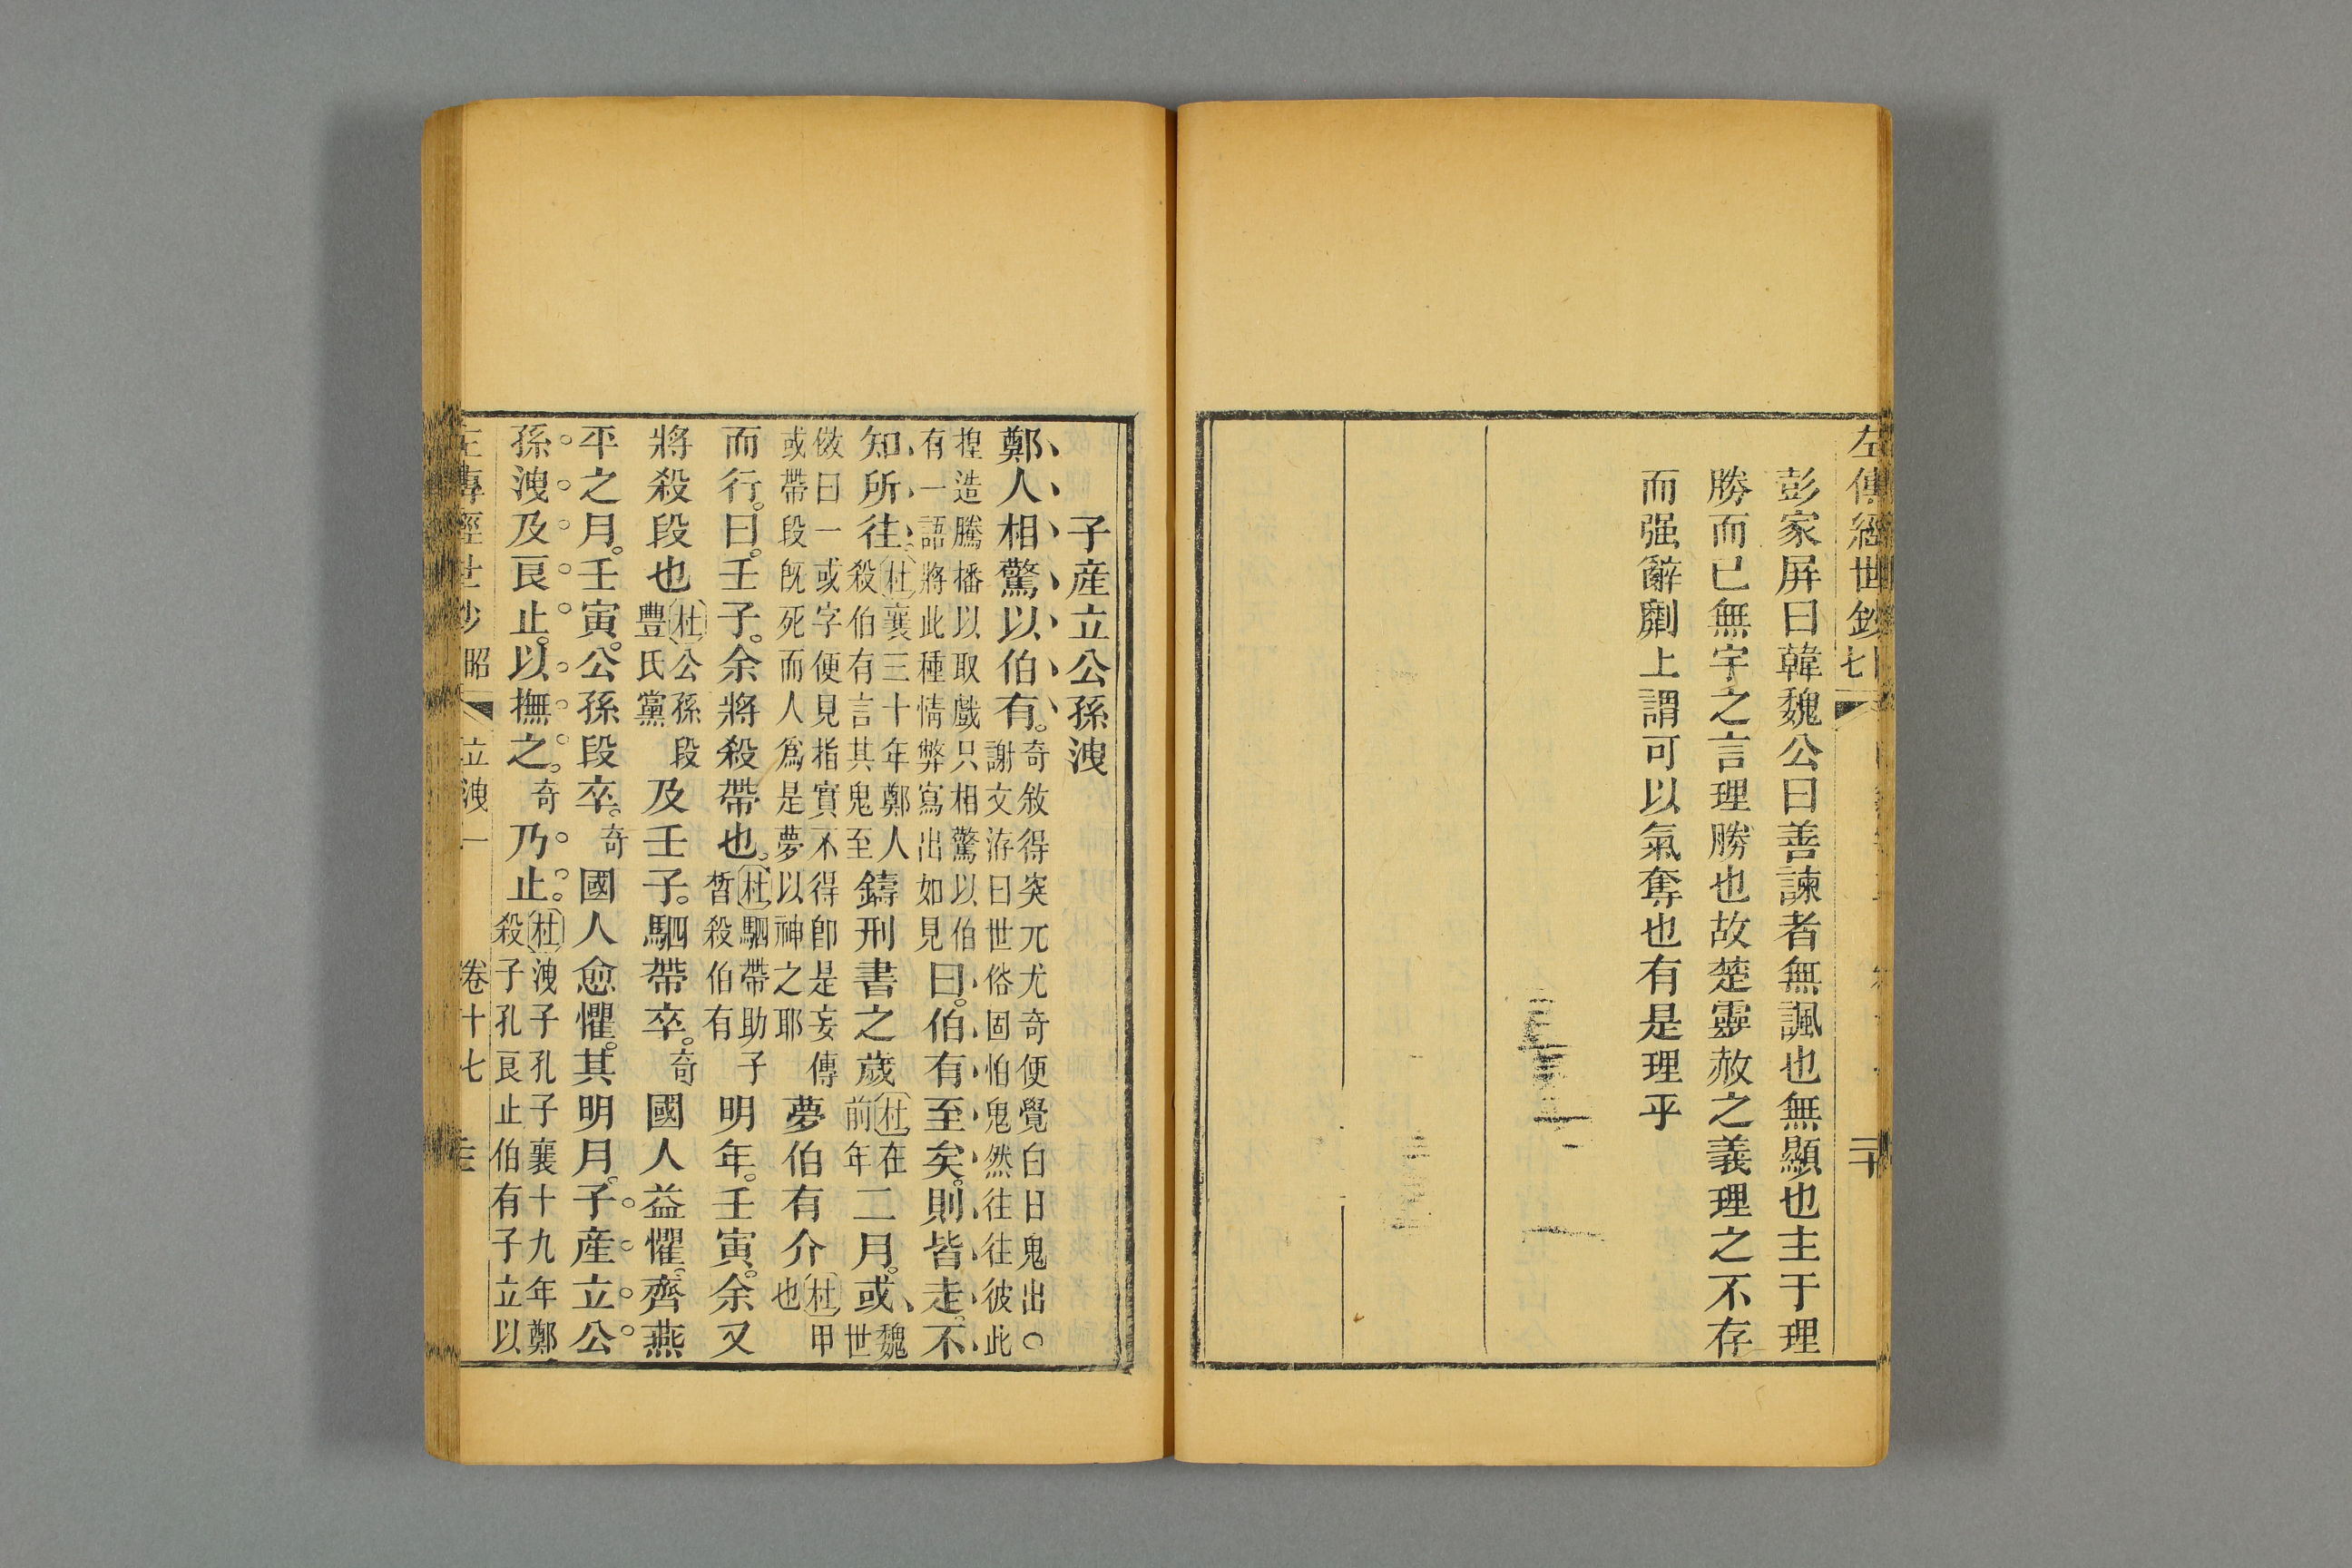 左傳經世鈔
彭家屏曰韓魏公曰善諫者無諷也無顯也主于理
勝而已無宇之言理勝也故楚靈赦之義理之不存
而强辭劘上謂可以氣奪也有是理乎
子産立公孫洩
鄭人相驚以伯有。奇敘得突兀尤奇便覺白日鬼出○
謝文洊曰世俗固怕鬼然往往彼此
揑造騰播以取戲只相驚以伯
有一語將此種情弊寫出如見曰。伯有至矣。則皆走。不
知所往。杜襄三十年鄭人
殺伯有言其鬼至鑄刑書之歲杜在
前年二月。或魏
世
傚曰一或字便見指實不得卽是妄傳
或帶段旣死而人爲是夢以神之耶夢伯有介杜甲
也
而行。曰。壬子。余將殺帶也。杜駟帶助子
晳殺伯有明年。壬寅。余又
將殺段也杜公孫段
豐氏黨及壬子。駟帶卒。奇國人益懼。齊燕
平之月。壬寅。公孫段卒。奇國人愈懼。其明月。子産立公
孫洩及良止。以撫之。奇乃止。杜洩子孔子襄十九年鄭
殺子孔良止伯有子立以
左傳經世鈔 昭 立洩一 卷十七